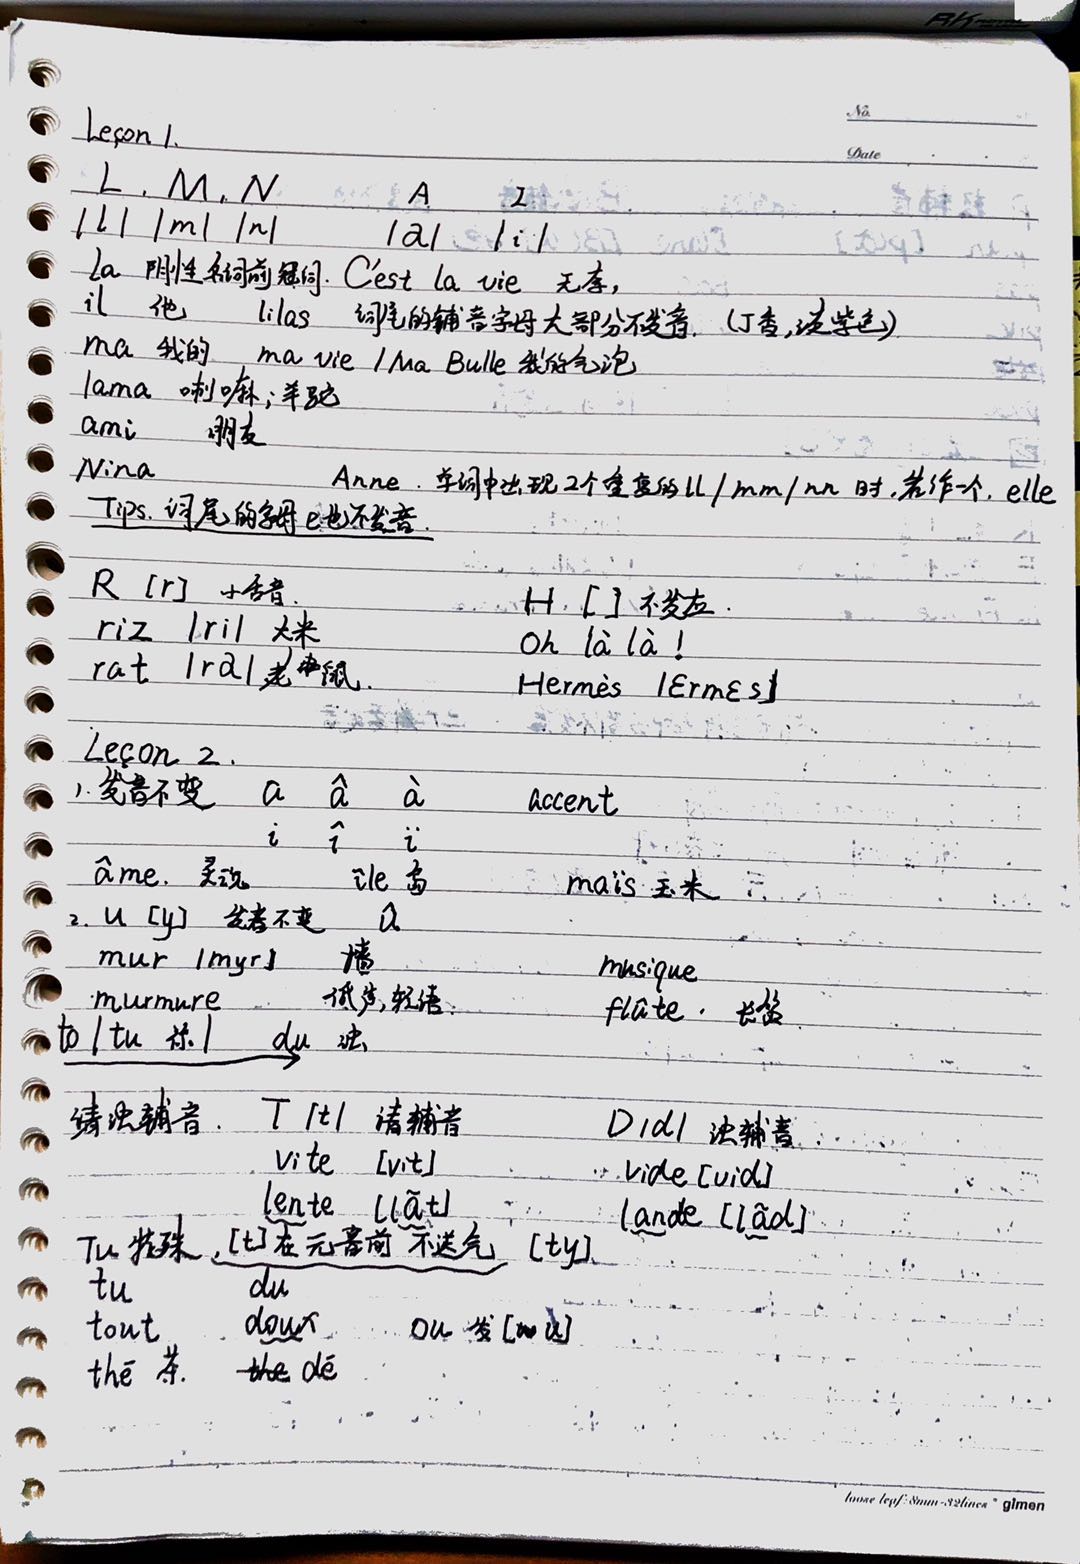 No.
Date
Leçon 1.
L, M, N A I
/l/ /m/ /n/ /a/ /i/
la 阴性名词前冠词. C'est la vie 无奈,
il 他 lilas 词尾的辅音字母大部分不发音. (丁香,淡紫色)
ma 我的 ma vie / Ma Bulle 我的气泡
lama 喇嘛;羊驼
ami 朋友
Nina Anne. 单词中出现2个重复的ll/mm/nn时,若作一个. elle
Tips. 词尾的字母e也不发音.
R [r] 小舌音. H [ ] 不发音.
riz /ri/ 大米 Oh là là !
rat /ra/ 老鼠. Hermès [ɛrmɛs]
Leçon 2.
1. 发音不变 a â à accent
i î ï
âme. 灵魂 île 岛 maïs 玉米
2. u [y] 发音不变 û
mur [myr] 墙 musique
murmure 低声,轻语. flûte. 长笛
to / tu 你/ du 浊
清浊辅音. T /t/ 清辅音 D /d/ 浊辅音
vite [vit] vide [vid]
lente [lãt] lande [lãd]
Tu 特殊. [t]在元音前不送气 [ty]
tu du
tout doux ou 发 [u]
thé 茶. the dé
loose leaf: 8mm-32lines * glmen